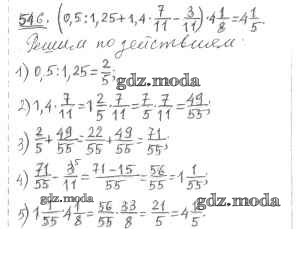 546. (0,5:1,25+1,4·7/11-3/11)·4 1/8=4 1/5.
Решим по действиям:
1) 0,5:1,25=2/5;
gdz.moda
2) 1,4·7/11=1 2/5·7/11=7/5·7/11=49/55;
3) 2/5+49/55=22/55+49/55=71/55;
4) 71/55-3/11=71-15/55=56/55=1 1/55;
gdz.moda
5) 1 1/55·4 1/8=56/55·33/8=21/5=4 1/5.
gdz.moda